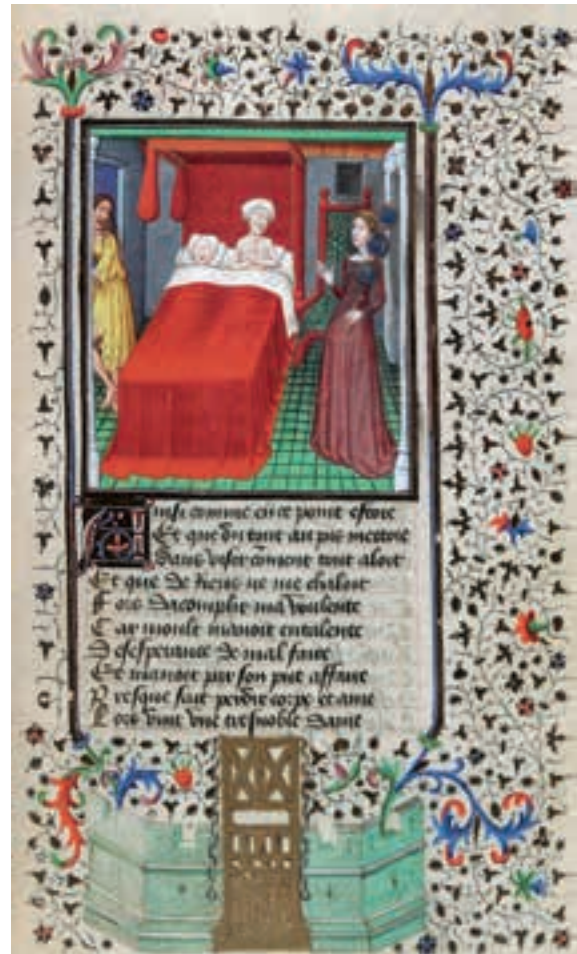 Ainsi comme en ce point estoie
Et que du tout au pis mettoie
Sans viser coment tout aloit
Et que de riens ne me chaloit
Fors dacomplir ma voulente
Car moult mavoit entalente
Desesperance de mal faire
Et mavoit par son put affaire
Presque fait perdre corps et ame
Lors vint une tresnoble dame